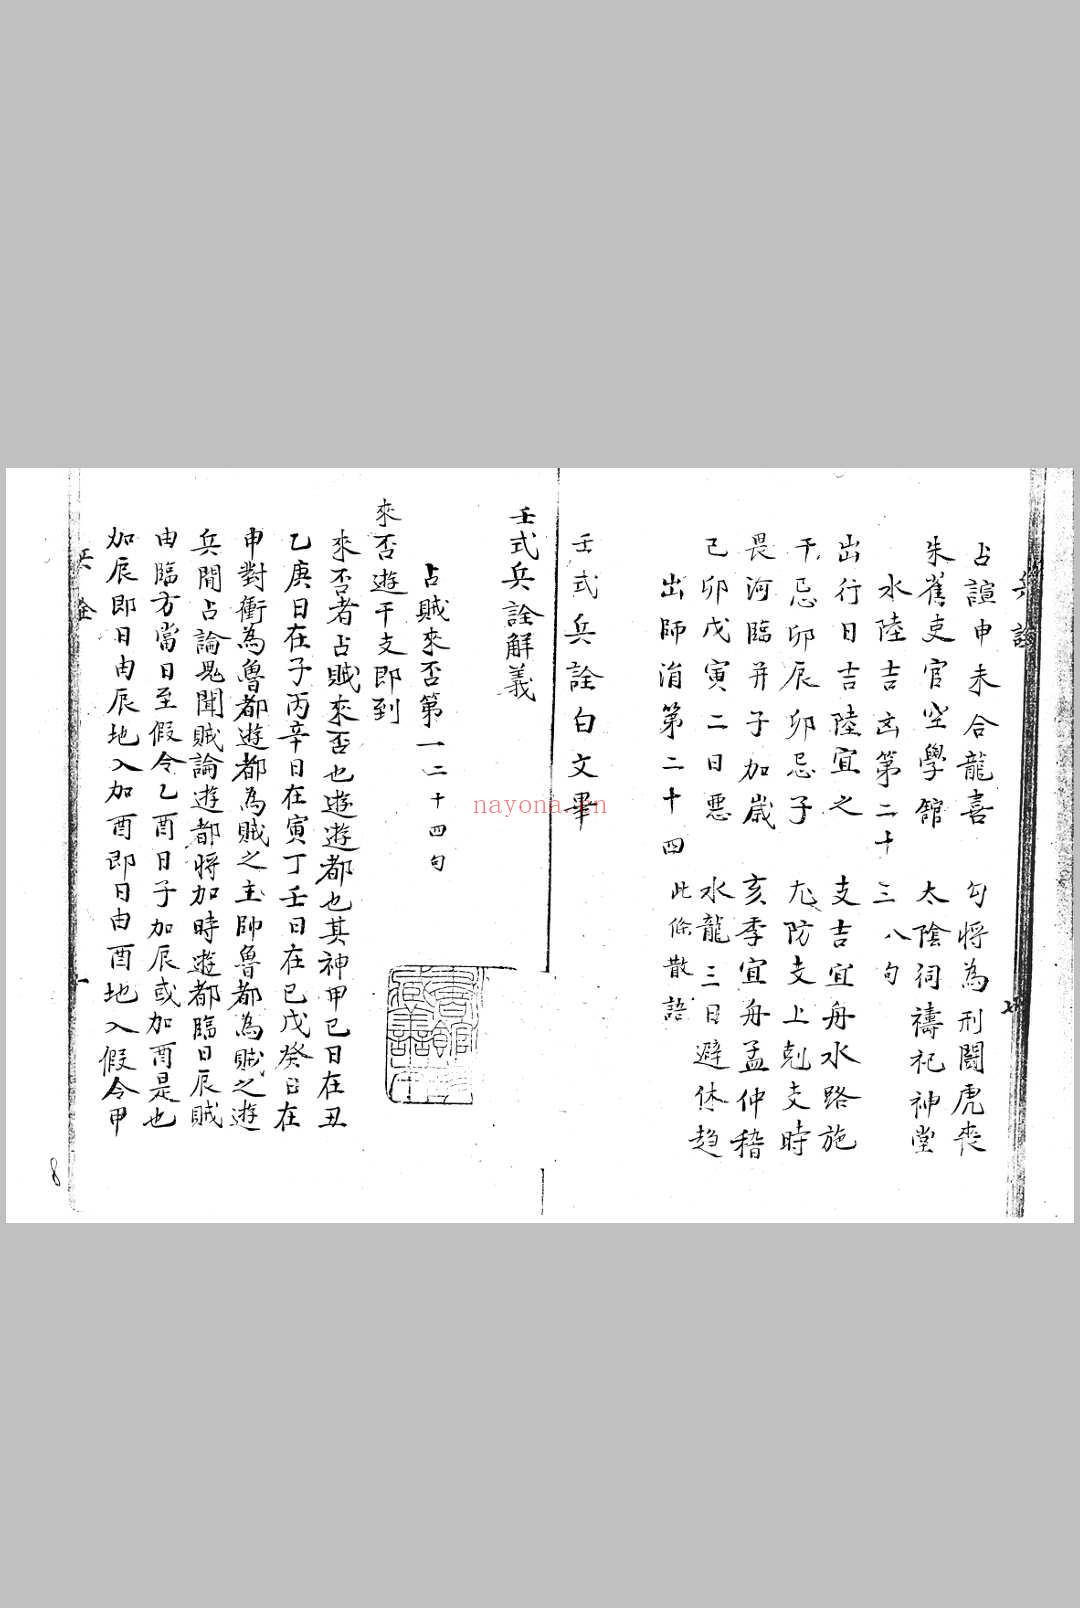 占諠申未合龍喜　勾將為刑鬪虎喪
朱雀吏官空學館　太陰祠禱祀神堂
水陸吉凶第二十三　八句
出行日吉陸宜之　支吉宜舟水路施
干忌卯辰卯忌子　尤防支上剋支時
畏河臨井子加歲　亥季宜舟孟仲稽
己卯戊寅二日惡　水龍三日避休趋
出師涓第二十四　此條散語
壬式兵詮白文畢
壬式兵詮解義
占賊來否第一　二十四句
來否遊干支即到
來否者占賊來否也遊遊都也其神甲己日在丑
乙庚日在子丙辛日在寅丁壬日在巳戊癸日在
申對衝為魯都遊都為賊之主帥魯都為賊之遊
兵間占論見聞賊論遊都將加時遊都臨日辰賊
由臨方當日至假令乙酉日子加辰或加酉是也
加辰即日由辰地入加酉即日由酉地入假令甲
兵詮
七
一
8
nayona.cn